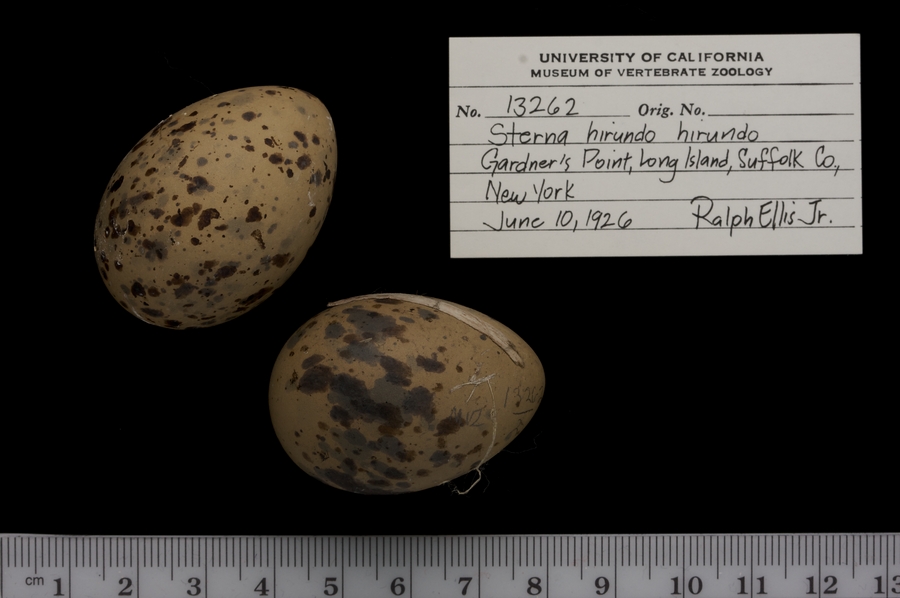 UNIVERSITY OF CALIFORNIA
MUSEUM OF VERTEBRATE ZOOLOGY
No. 13262 Orig. No.
Sterna hirundo hirundo
Gardner's Point, Long Island, Suffolk Co.,
New York
June 10, 1926 Ralph Ellis Jr.
cm 1 2 3 4 5 6 7 8 9 10 11 12 13